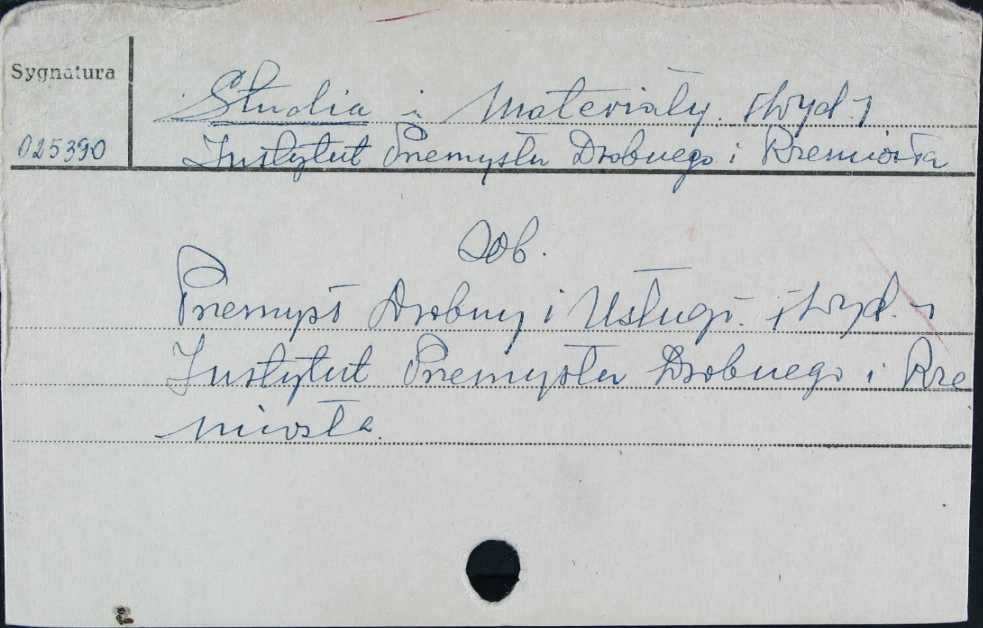 Sygnatura
Studia i Materiały. [Wyd.]
025390
Instytut Przemysłu Drobnego i Rzemiosła
Zob.
Przemysł Drobny i Usługi. [Wyd.]
Instytut Przemysłu Drobnego i Rze
miosła.